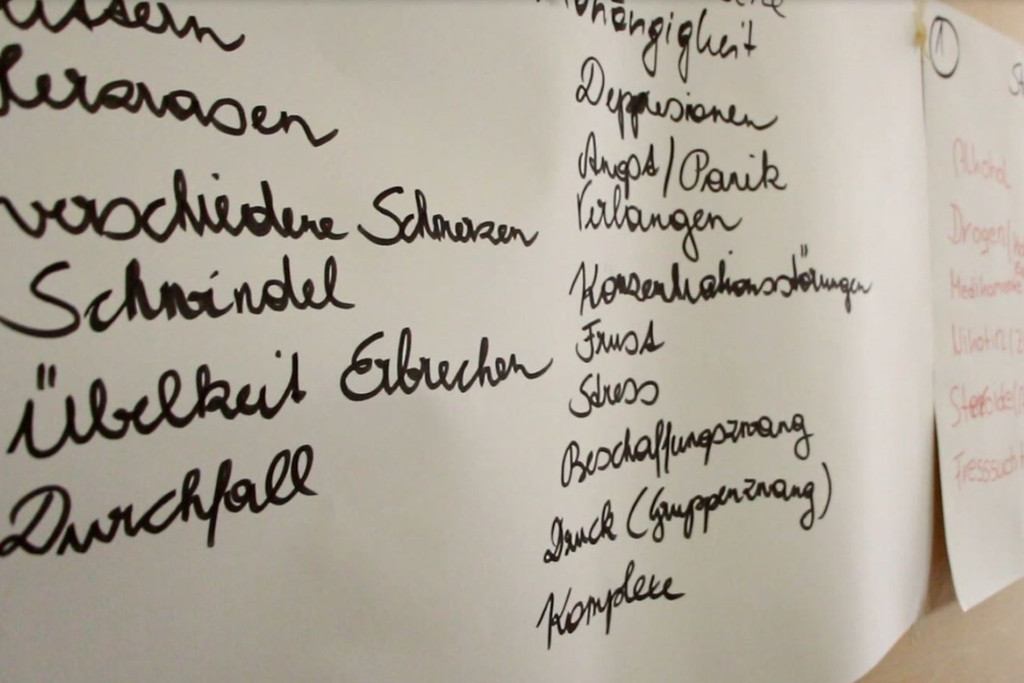 Herzrasen
verschiedene Schmerzen
Schwindel
Übelkeit Erbrechen
Durchfall
Abhängigkeit
Depresionen
Angst/Panik
Verlangen
Konzentrationsstörungen
Frust
Stress
Beschaffungszwang
Druck (Gruppenzwang)
Komplexe
1
Alkohol
Drogen/
Medikamente
Nikotin/Z
Steroide/
Fresssucht